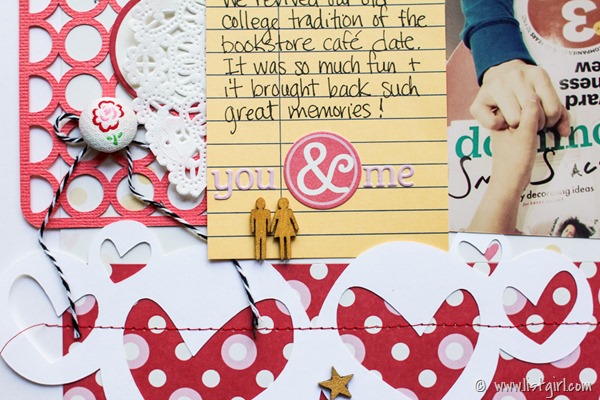 We revived our old
college tradition of the
bookstore café date.
It was so much fun +
it brought back such
great memories!
you & me
3
ward
ness
view
do
decorating ideas
© www.listgirl.com